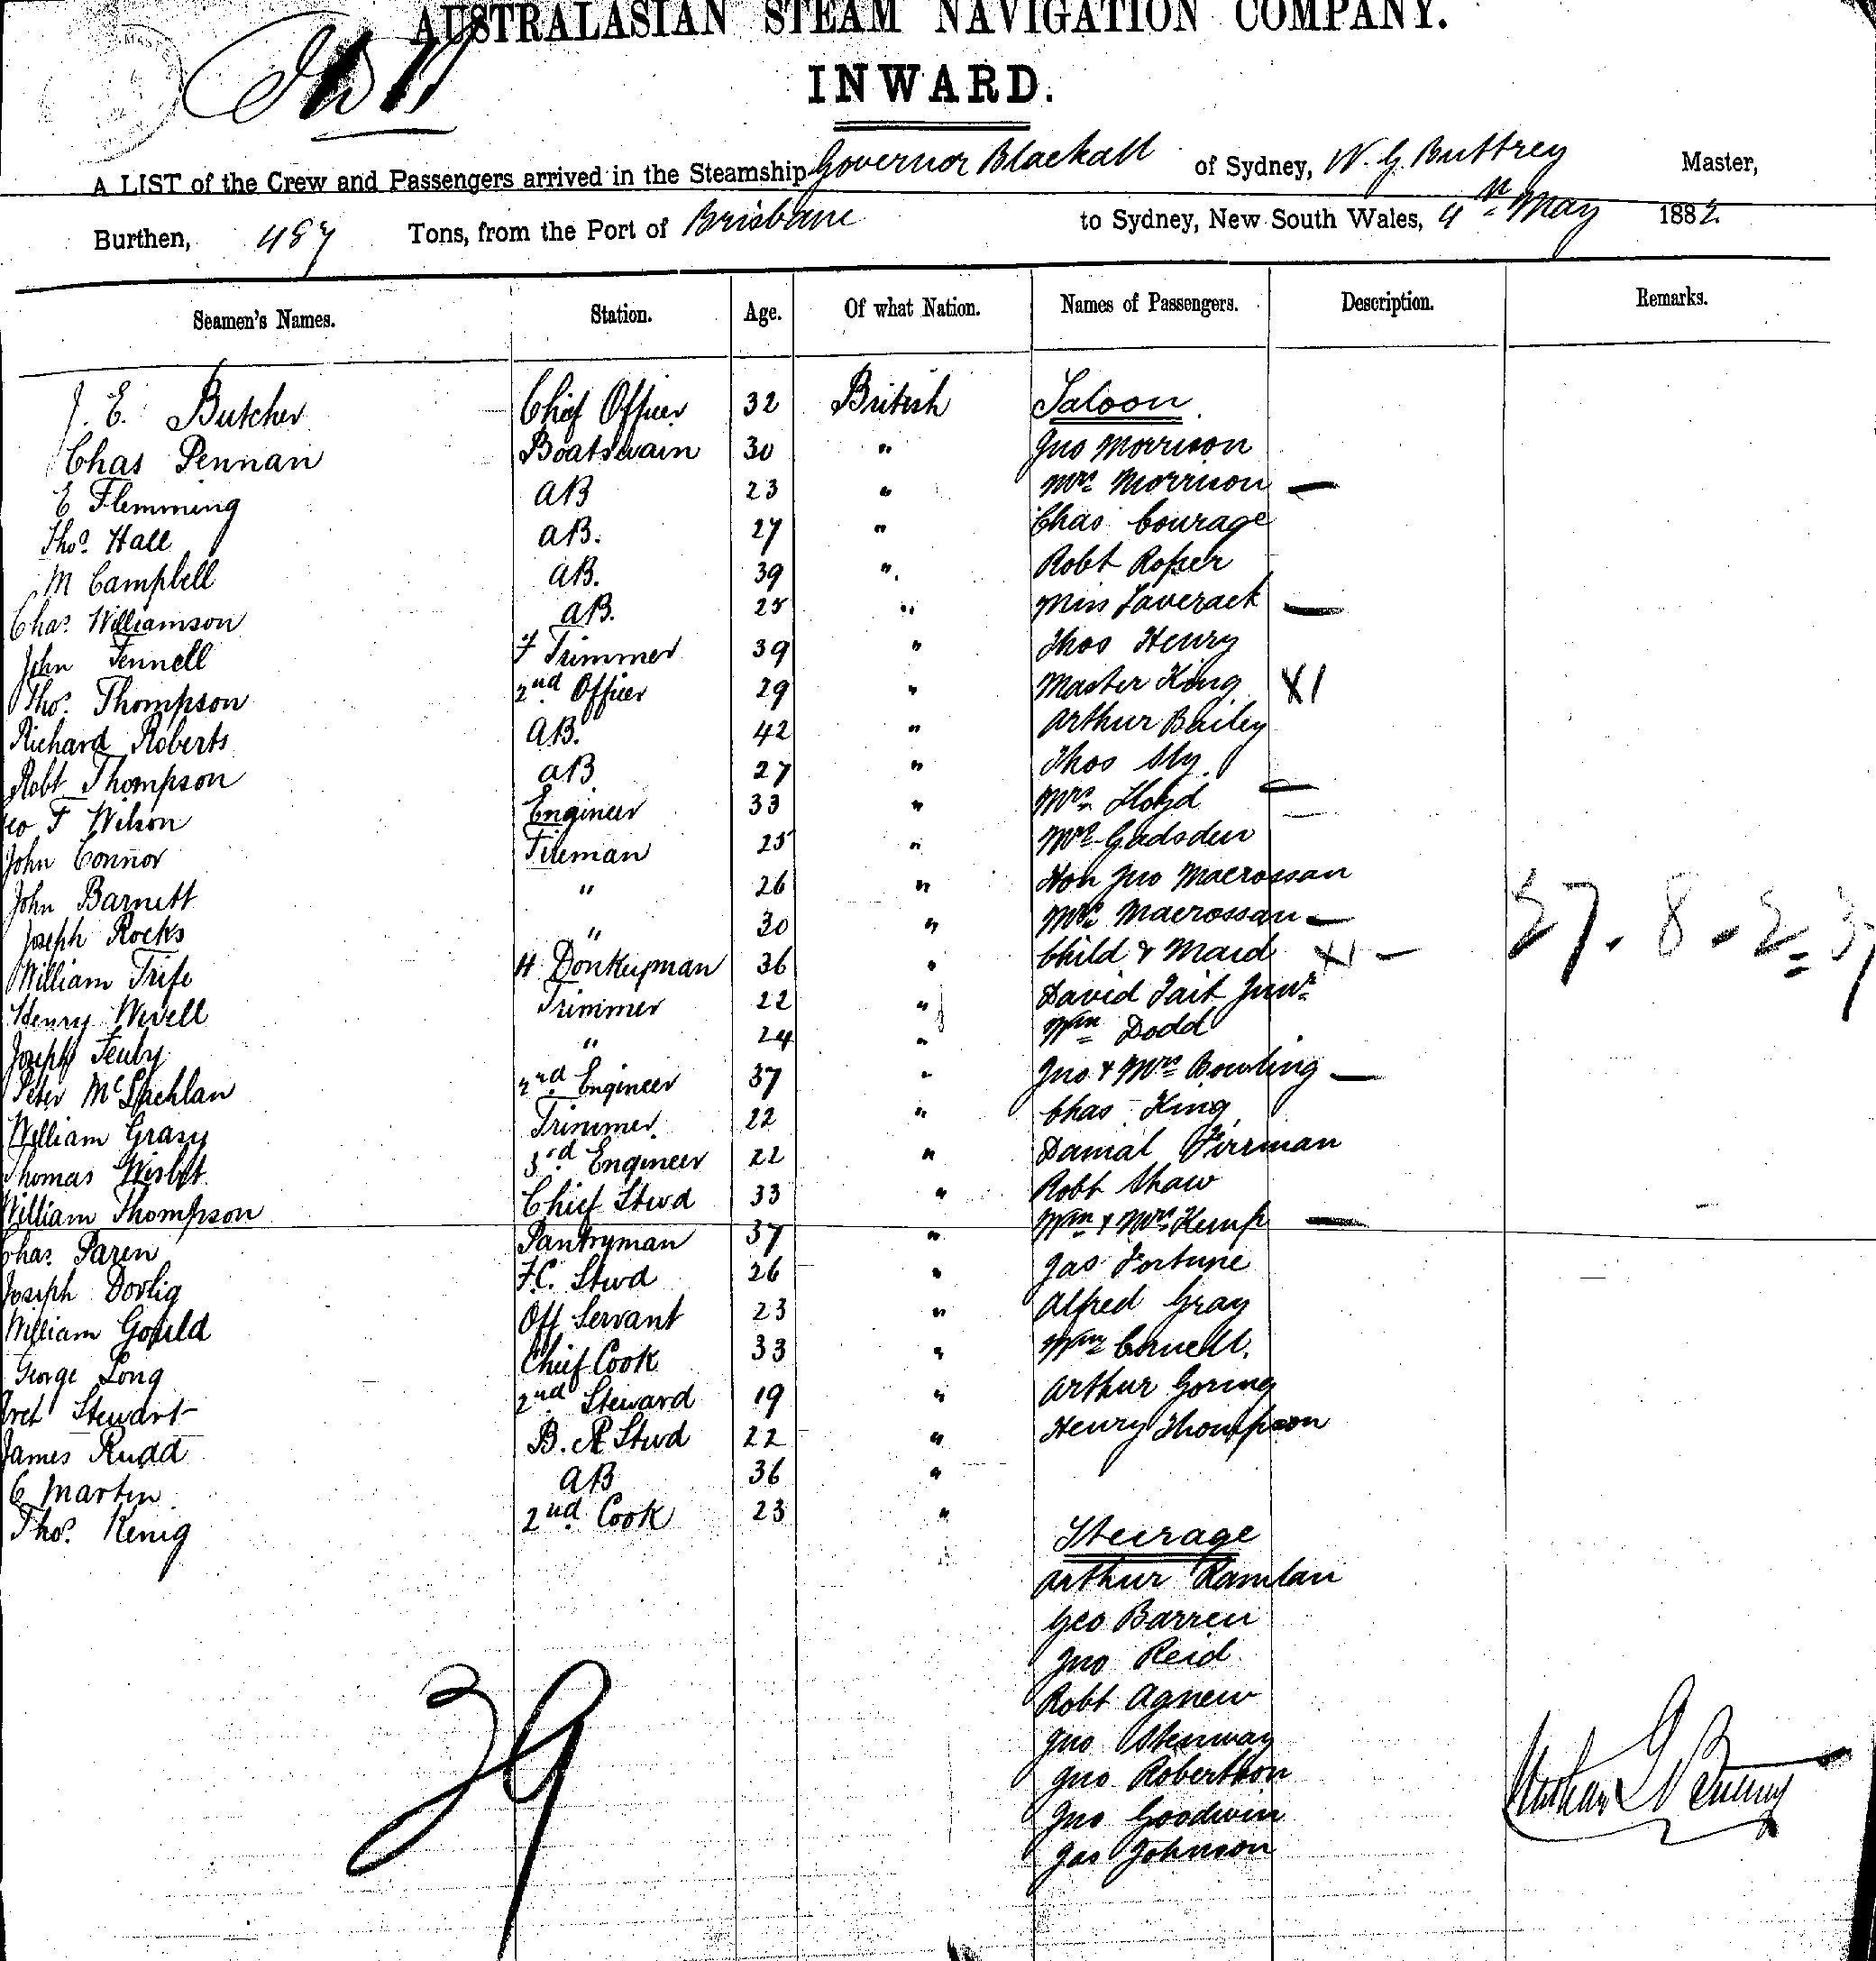 AUSTRALASIAN STEAM NAVIGATION COMPANY.
INWARD.
A LIST of the Crew and Passengers arrived in the Steamship Governor Blackall of Sydney, W. G. Buttrey Master,
Burthen, 487 Tons, from the Port of Brisbane to Sydney, New South Wales, 4th May 1882
Seamen's Names. Station. Age. Of what Nation. Names of Passengers. Description. Remarks.
J. E. Butcher Chief Officer 32 British Saloon
Chas Pennan Boatswain 30 " Jno Morrison
E Flemming AB 23 " Mrs Morrison —
Thos. Hall AB. 27 " Chas Courage
M Campbell AB. 39 " Robt Roper
Chas. Williamson AB. 25 " Miss Laverack —
John Fennell F Trimmer 39 " Thos Henry
Thos. Thompson 2nd Officer 29 " Master King X1
Richard Roberts AB. 42 " Arthur Bailey
Robt Thompson AB 27 " Thos Sly
Geo F Wilson Engineer 33 " Mrs Lloyd —
John Connor Fireman 25 " Mrs Gadsden —
John Barnett " 26 " Hon Jno Macrossan
Joseph Rocks " 30 " Mrs Macrossan —
William Trife H Donkeyman 36 " Child & Maid X1 —
Henry Wevell Trimmer 22 " David Tait Junr
Joseph Fenby " 24 " Wm Dodd
Peter McLachlan 2nd Engineer 37 " Jno & Mrs Bowling —
William Grasy Trimmer 22 " Chas King
Thomas Nisbet 3rd Engineer 22 " Danial Firrman
William Thompson Chief Stwd 33 " Robt Shaw
Chas. Paren Pantryman 37 " Wm & Mrs Kemp —
Joseph Dovlig F.C. Stwd 26 " Jas Fortune
William Gould Off Servant 23 " Alfred Gray
George Long Chief Cook 33 " Wm
Stewart 2nd Steward 19 " Arthur Goring
James Rudd B. R Stwd 22 " Henry Thompson
C Martin AB 36 "
Thos. Kenig 2nd Cook 23 "
Steerage
Arthur Ramlan
Geo Barren
Jno Reid
Robt Agnew
Jno Stenway
Jno Robertson
Jno Goodwin
Jas Johnson
37. 8. 2 = 39
39